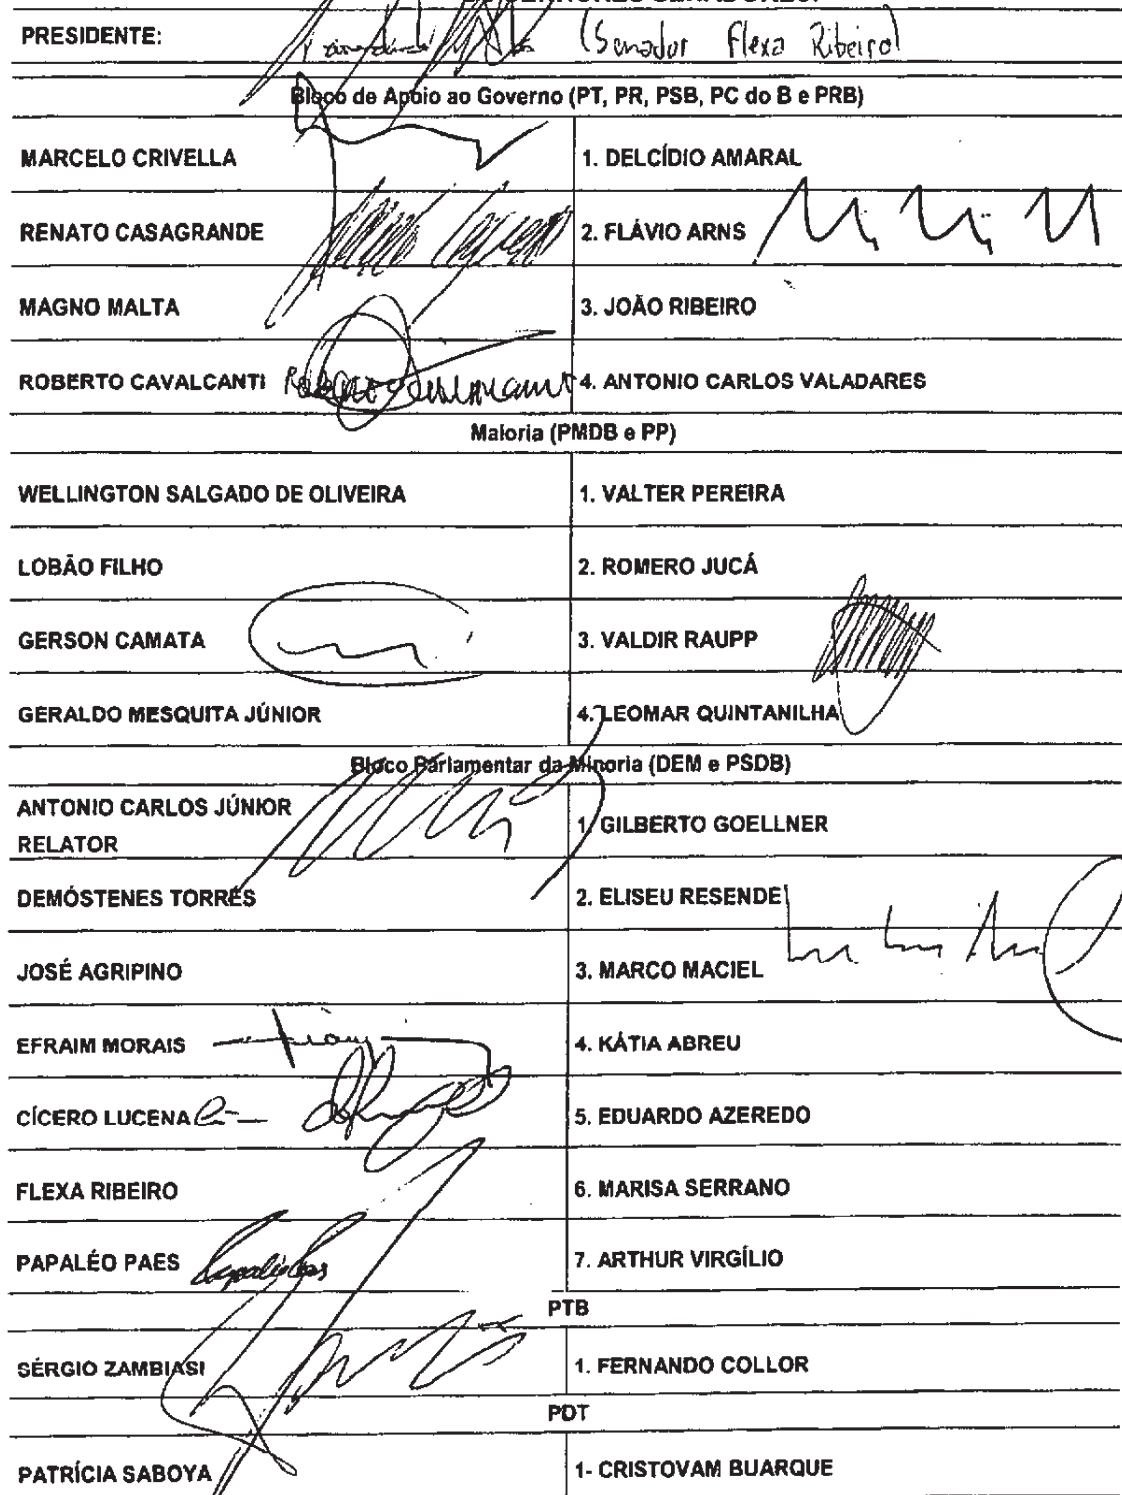 PRESIDENTE: (Senador Flexa Ribeiro)
Bloco de Apoio ao Governo (PT, PR, PSB, PC do B e PRB)
MARCELO CRIVELLA 1. DELCÍDIO AMARAL
RENATO CASAGRANDE 2. FLÁVIO ARNS
MAGNO MALTA 3. JOÃO RIBEIRO
ROBERTO CAVALCANTI 4. ANTONIO CARLOS VALADARES
Maioria (PMDB e PP)
WELLINGTON SALGADO DE OLIVEIRA 1. VALTER PEREIRA
LOBÃO FILHO 2. ROMERO JUCÁ
GERSON CAMATA 3. VALDIR RAUPP
GERALDO MESQUITA JÚNIOR 4. LEOMAR QUINTANILHA
Bloco Parlamentar da Minoria (DEM e PSDB)
ANTONIO CARLOS JÚNIOR
RELATOR 1. GILBERTO GOELLNER
DEMÓSTENES TORRES 2. ELISEU RESENDE
JOSÉ AGRIPINO 3. MARCO MACIEL
EFRAIM MORAIS 4. KÁTIA ABREU
CÍCERO LUCENA 5. EDUARDO AZEREDO
FLEXA RIBEIRO 6. MARISA SERRANO
PAPALÉO PAES 7. ARTHUR VIRGÍLIO
PTB
SÉRGIO ZAMBIASI 1. FERNANDO COLLOR
PDT
PATRÍCIA SABOYA 1- CRISTOVAM BUARQUE